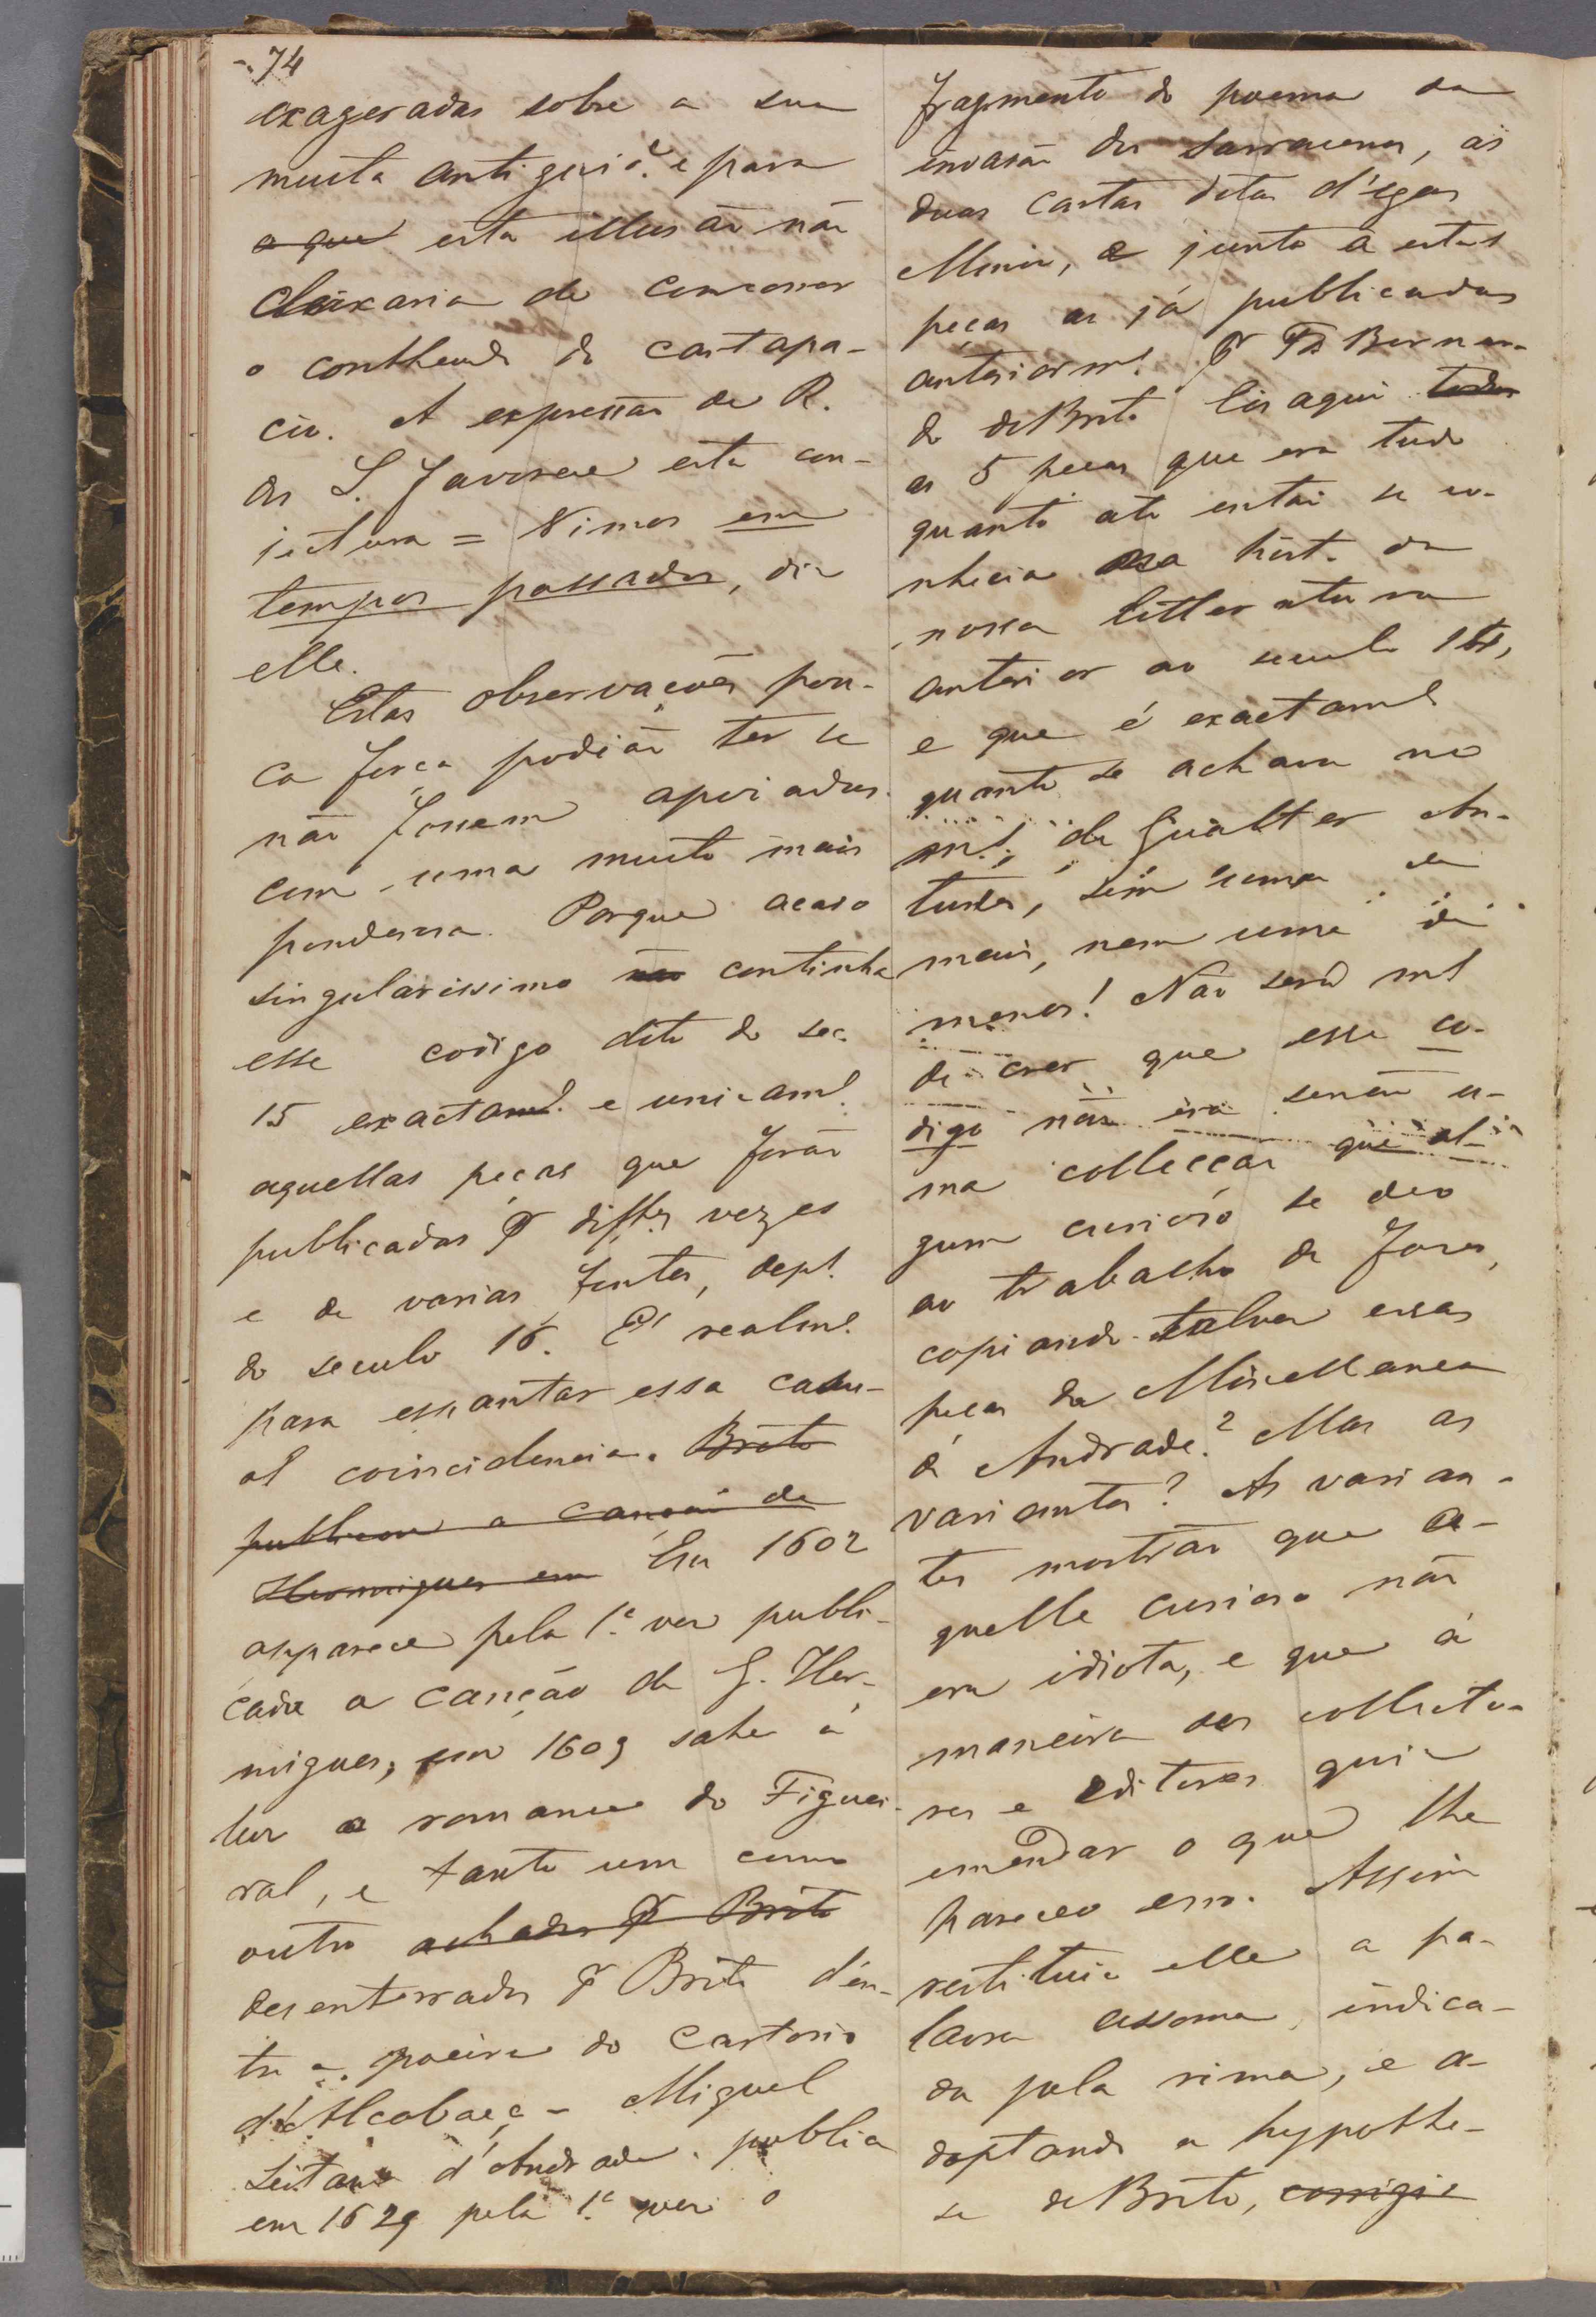 74
exageradas sobre a sua
muita antiguid.e e para
a que esta illusão não
deixaria de concorrer
o contheudo do cartapa-
cio. A expressão de R.
dos S. favorece esta con-
jectura = Vimos em
tempos passados, diz
elle.
Estas observações pou-
ca força podião ter se
não fossem apoiadas
com uma muito mais
ponderosa. Porque acaso
singularissimo não continha
esse codigo dito do sec.
15 exactam.te e unicam.te
aquellas peças que forão
publicadas p.r diff.es vezes
e de varias fontes, dep.s
do seculo 16. É realm.te
para espantar essa casu-
al coincidencia. Brito
publicou a canção de
Hermigues em Em 1602
apparece pela 1.a vez publi-
cada a canção de G. Her-
migues, em 1609 sahe á
luz o romance do Figuei-
ral, e tanto um como
outro achados p.r Brito
desenterrados p.r Brito d'en-
tre a poeira do Cartorio
d'Alcobaça - Miguel
Leitão d'Andrade publica
em 1629 pela 1.a vez o
fragmento do poema da
invasão dos sarracenos, as
duas cartas ditas d'Egas
Moniz, e junto a estas
peças as já publicadas
anteriorm.te p.r Fr Bernar-
do de Brito Eis aqui todas
as 5 peças que era tudo
quanto até então se co-
nhecia na hist. da
nossa litteratura
anterior ao seculo 16,
e que é exactam.te
quanto se achava no
m.s de Gualter An-
tunes, sem uma de
mais, nem uma de
menos! Não será m.s
de crer que esse co-
digo não era senão u-
ma collecção que al-
gum curioso se deo
ao trabalho de fazer,
copiando talvez essas
peças da Miscellanea
d'Andrade? Mas as
variantes? As varian-
tes mostrão que a-
quelle curioso não
era idiota, e que á
maneira dos collecto-
res e editores quiz
emendar o que lhe
pareceo erro. Assim
restituiu elle a pa-
lavra assoma, indica-
da pela rima, e a-
doptando a hypothe-
se de Brito, corrigio